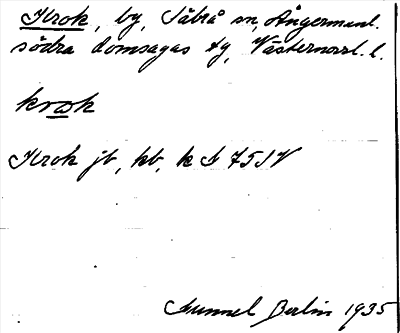 Krok, by, Säbrå sn, Ångermanl.
södra domsagas tg, Västernorrl. l.
krok
Krok jb, kb, k h 75 SV
Gunnel Berlin 1935